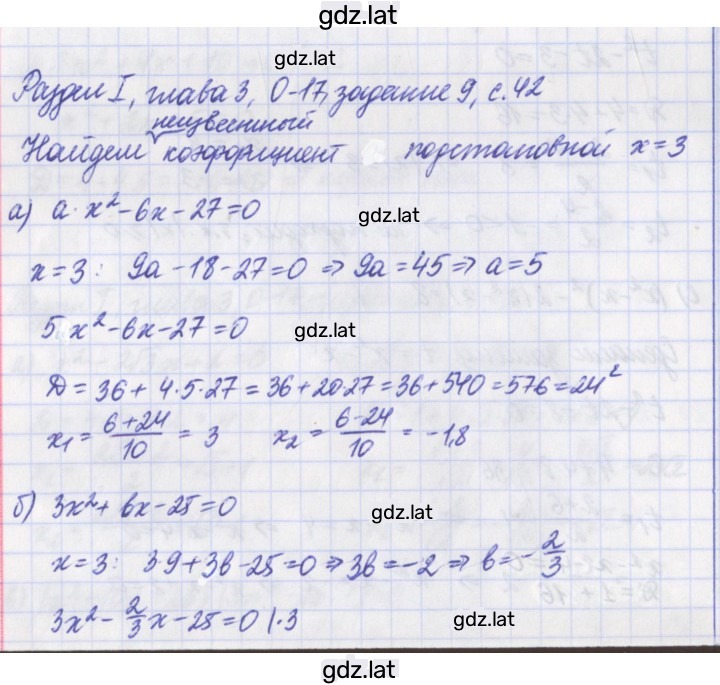 gdz.lat
gdz.lat
Раздел I, глава 3, О-17, задание 9, с. 42
неизвестный
Найдем коэффициент подстановкой x = 3
а) a · x² - 6x - 27 = 0
gdz.lat
x = 3: 9a - 18 - 27 = 0 ⇒ 9a = 45 ⇒ a = 5
5x² - 6x - 27 = 0
gdz.lat
Д = 36 + 4·5·27 = 36 + 20·27 = 36 + 540 = 576 = 24²
x₁ = (6+24)/10 = 3 x₂ = (6-24)/10 = -1,8
б) 3x² + bx - 25 = 0
gdz.lat
x = 3: 3·9 + 3b - 25 = 0 ⇒ 3b = -2 ⇒ b = -2/3
3x² - 2/3x - 25 = 0 |·3
gdz.lat
gdz.lat